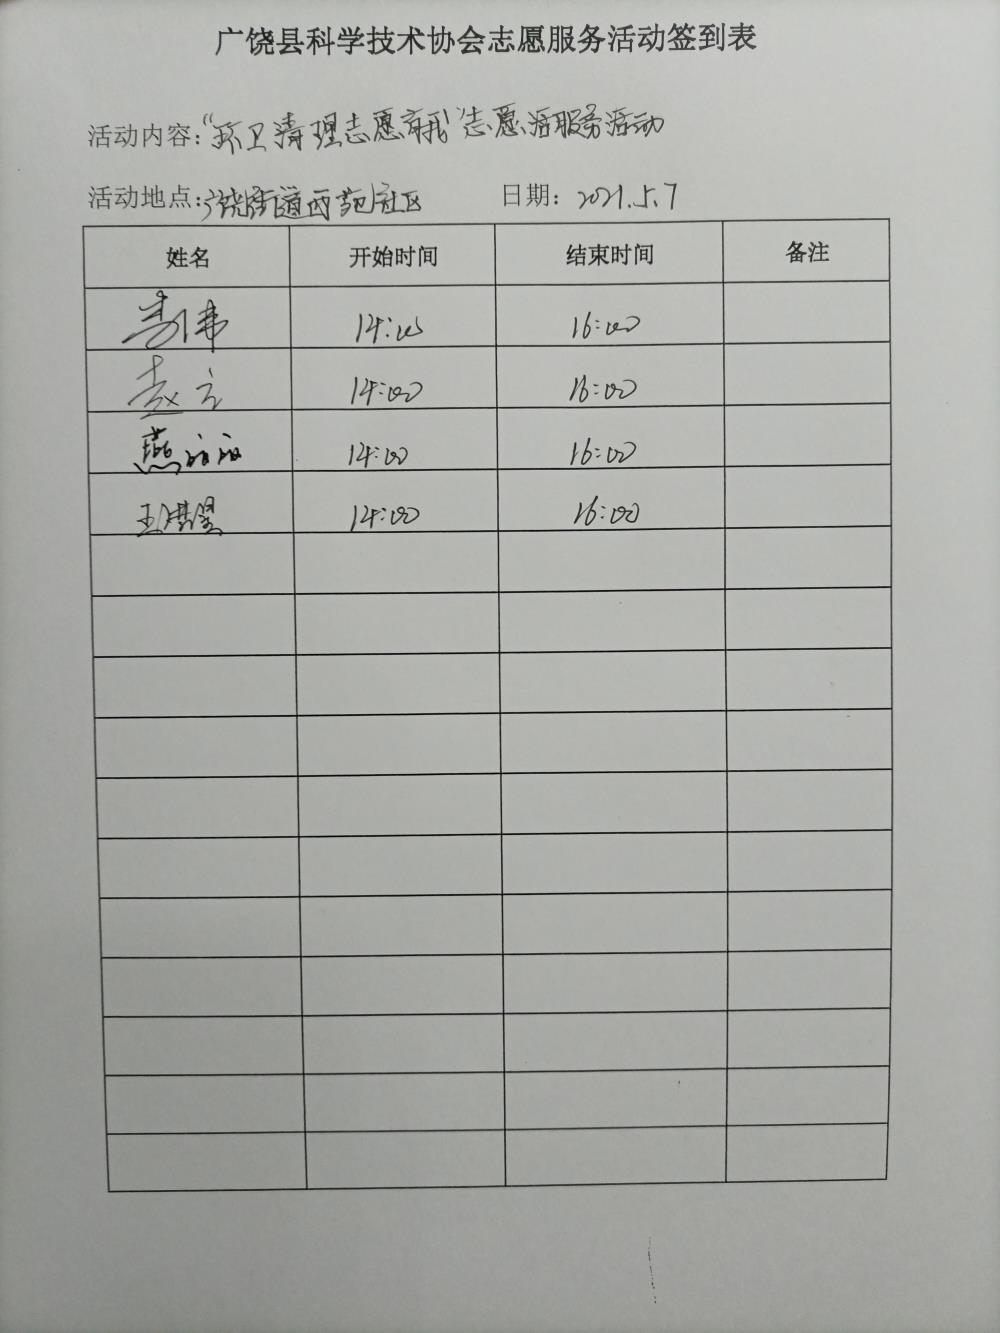 广饶县科学技术协会志愿服务活动签到表
活动内容:“环卫清理志愿有我”志愿活服务活动
活动地点:广饶街道西苑社区 日期: 2021.5.7
姓名 开始时间 结束时间 备注
14:00 16:00
赵 14:00 16:00
燕 14:00 16:00
王洪星 14:00 16:00